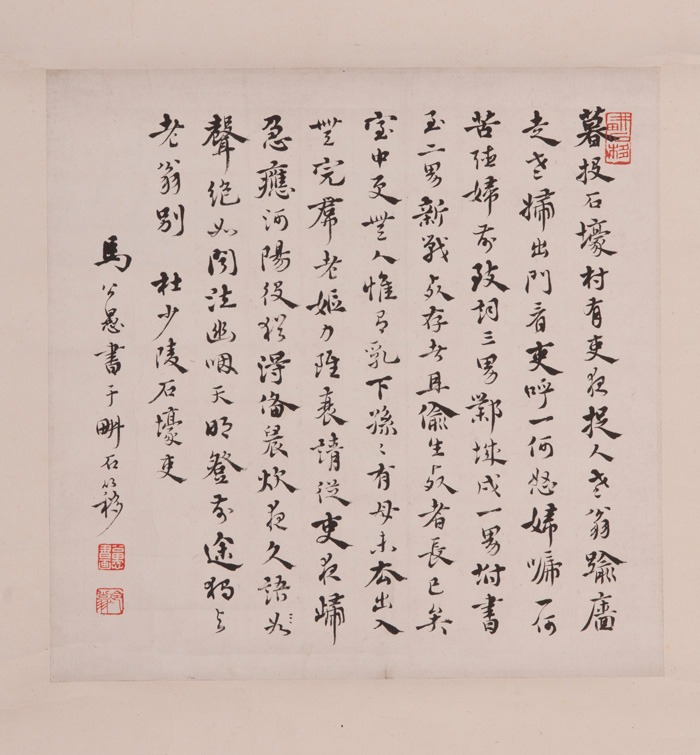 暮投石壕村有吏夜捉人老翁踰廧
走老婦出門看吏呼一何怒婦啼一何
苦聽婦前致詞三男鄴城戍一男坿書
至二男新戰死存者且偷生死者長已矣
室中更無人惟有乳下孫〻有母未去出入
無完帬老嫗力雖衰請從吏夜歸
急應河陽役猶得備晨炊夜久語如
聲絕如聞泣幽咽天明登前途獨與
老翁別 杜少陵石壕吏
馬公愚書于畊石簃
畊石簃